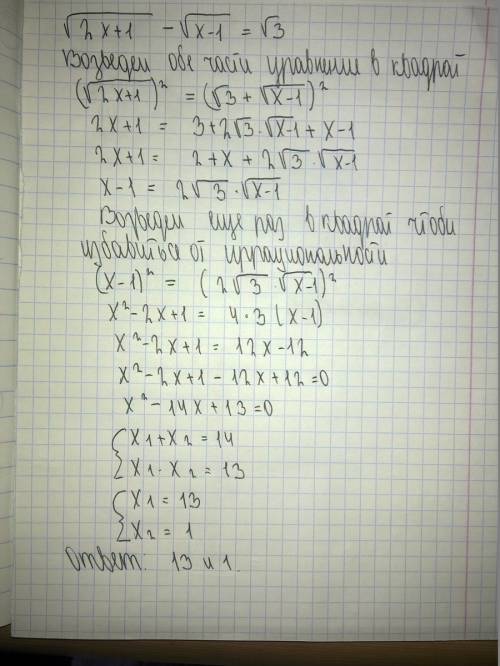 √(2x+1) - √(x-1) = √3
Возведем обе части уравнения в квадрат
(√(2x+1))² = (√3 + √(x-1))²
2x+1 = 3+2√3·√(x-1) + x-1
2x+1 = 2+x + 2√3 · √(x-1)
x-1 = 2√3 · √(x-1)
Возведем еще раз в квадрат чтоби
избавиться от иррациональности
(x-1)² = (2√3 · √(x-1))²
x²-2x+1 = 4·3(x-1)
x²-2x+1 = 12x-12
x²-2x+1-12x+12=0
x²-14x+13=0
{x1+x2=14
x1·x2=13
{x1=13
x2=1
Ответ: 13 и 1